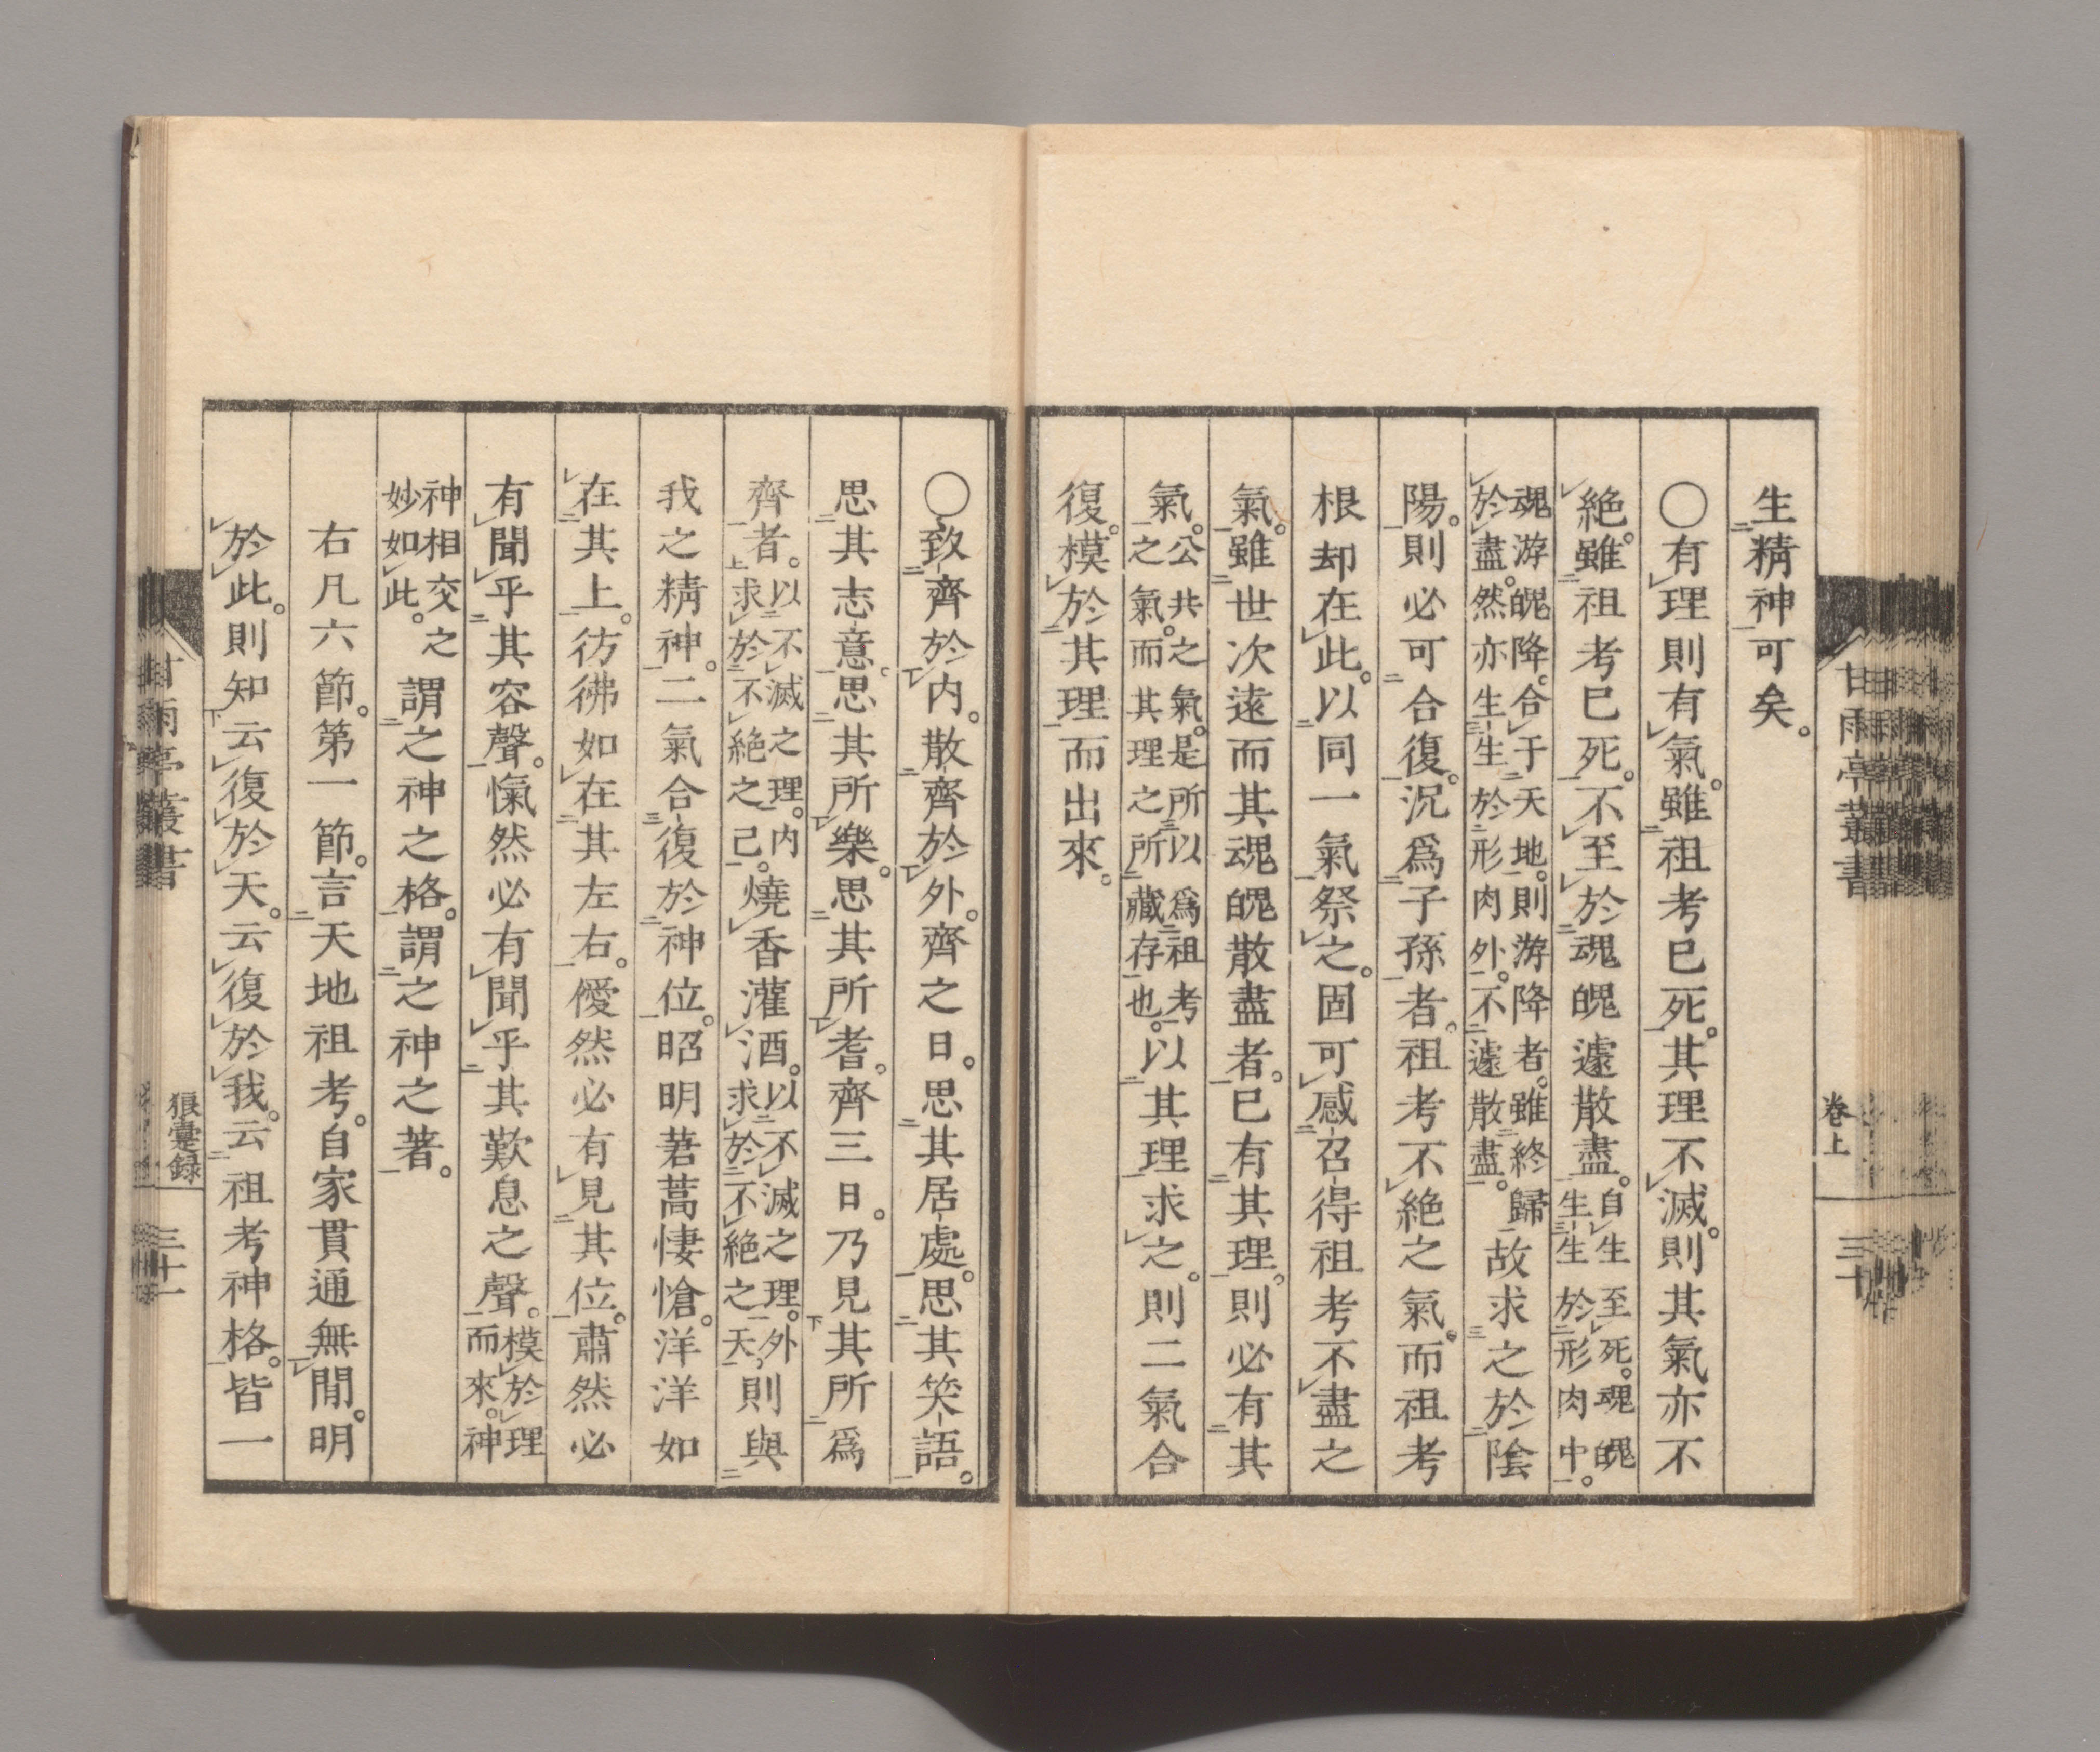 生精神可矣。
〇有理則有氣。雖祖考已死。其理不滅。則其氣亦不
絕。雖祖考已死。不至於魂魄遽散盡。自生至死。魂魄生生於形肉中。
魂游魄降。合于天地。則游降者。雖終歸於盡。然亦生生於形肉外。不遽散盡。故求之於陰
陽。則必可合復。況爲子孫者。祖考不絕之氣。而祖考
根却在此。以同一氣祭之。固可感召得祖考不盡之
氣。雖世次遠而其魂魄散盡者。已有其理。則必有其
氣。公共之氣。是所以爲祖考之氣。而其理之所藏存也。以其理求之。則二氣合
復。模於其理而出來。
甘雨亭叢書
卷上
三十
〇致齊於内。散齊於外。齊之日。思其居處。思其笑語。
思其志意。思其所樂。思其所耆。齊三日。乃見其所爲
齊者。以不滅之理。内求於不絕之己。燒香灌酒。以不滅之理。外求於不絕之天。則與
我之精神。二氣合復於神位。昭明焄蒿悽愴。洋洋如
在其上。彷彿如在其左右。僾然必有見其位。肅然必
有聞乎其容聲。愾然必有聞乎其歎息之聲。模於理而來。神
神相交之妙如此。謂之神之格。謂之神之著。
右凡六節。第一節。言天地祖考。自家貫通無間。明
於此。則知云復於天。云復於我。云祖考神格。皆一
甘雨亭叢書
狼疐録
三十一